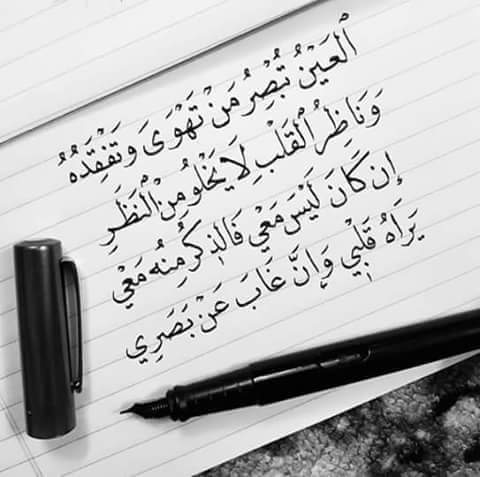 ٱلْعَيْنُ تُبْصِرُ مَنْ تَهْوَى وَتَفْقِدُهُ
وَنَاظِرُ ٱلْقَلْبِ لَا يَخْلُو مِنَ ٱلنَّظَرِ
إِن كَانَ لَيْسَ مَعِي فَالذِّكْرُ مِنْهُ مَعِي
يَرَاهُ قَلْبِي وَإِنْ غَابَ عَنْ بَصَرِي